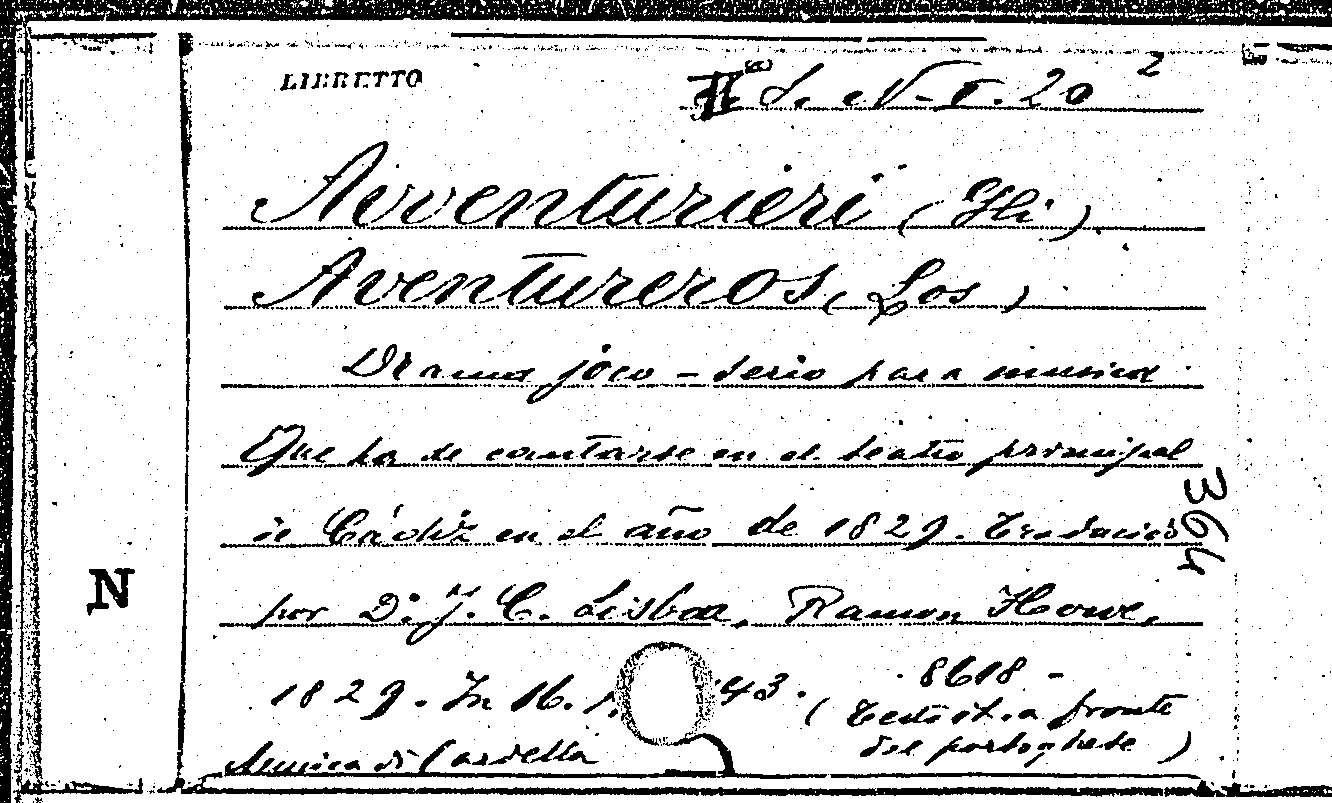 LIBRETTO
N-I. 20 2
Avventurieri (Gli).
Aventureros (Los)
Drama joco-serio para musica
Que ha de cantarse en el teatro principal
de Cádiz en el año de 1829. Traducido
por D. J. C. Lisboa, Ramon Howe,
1829. In 16. p. 143. 8618 -
(testo it. a fronte
del portoghese)
Musica di Cordella
364
N